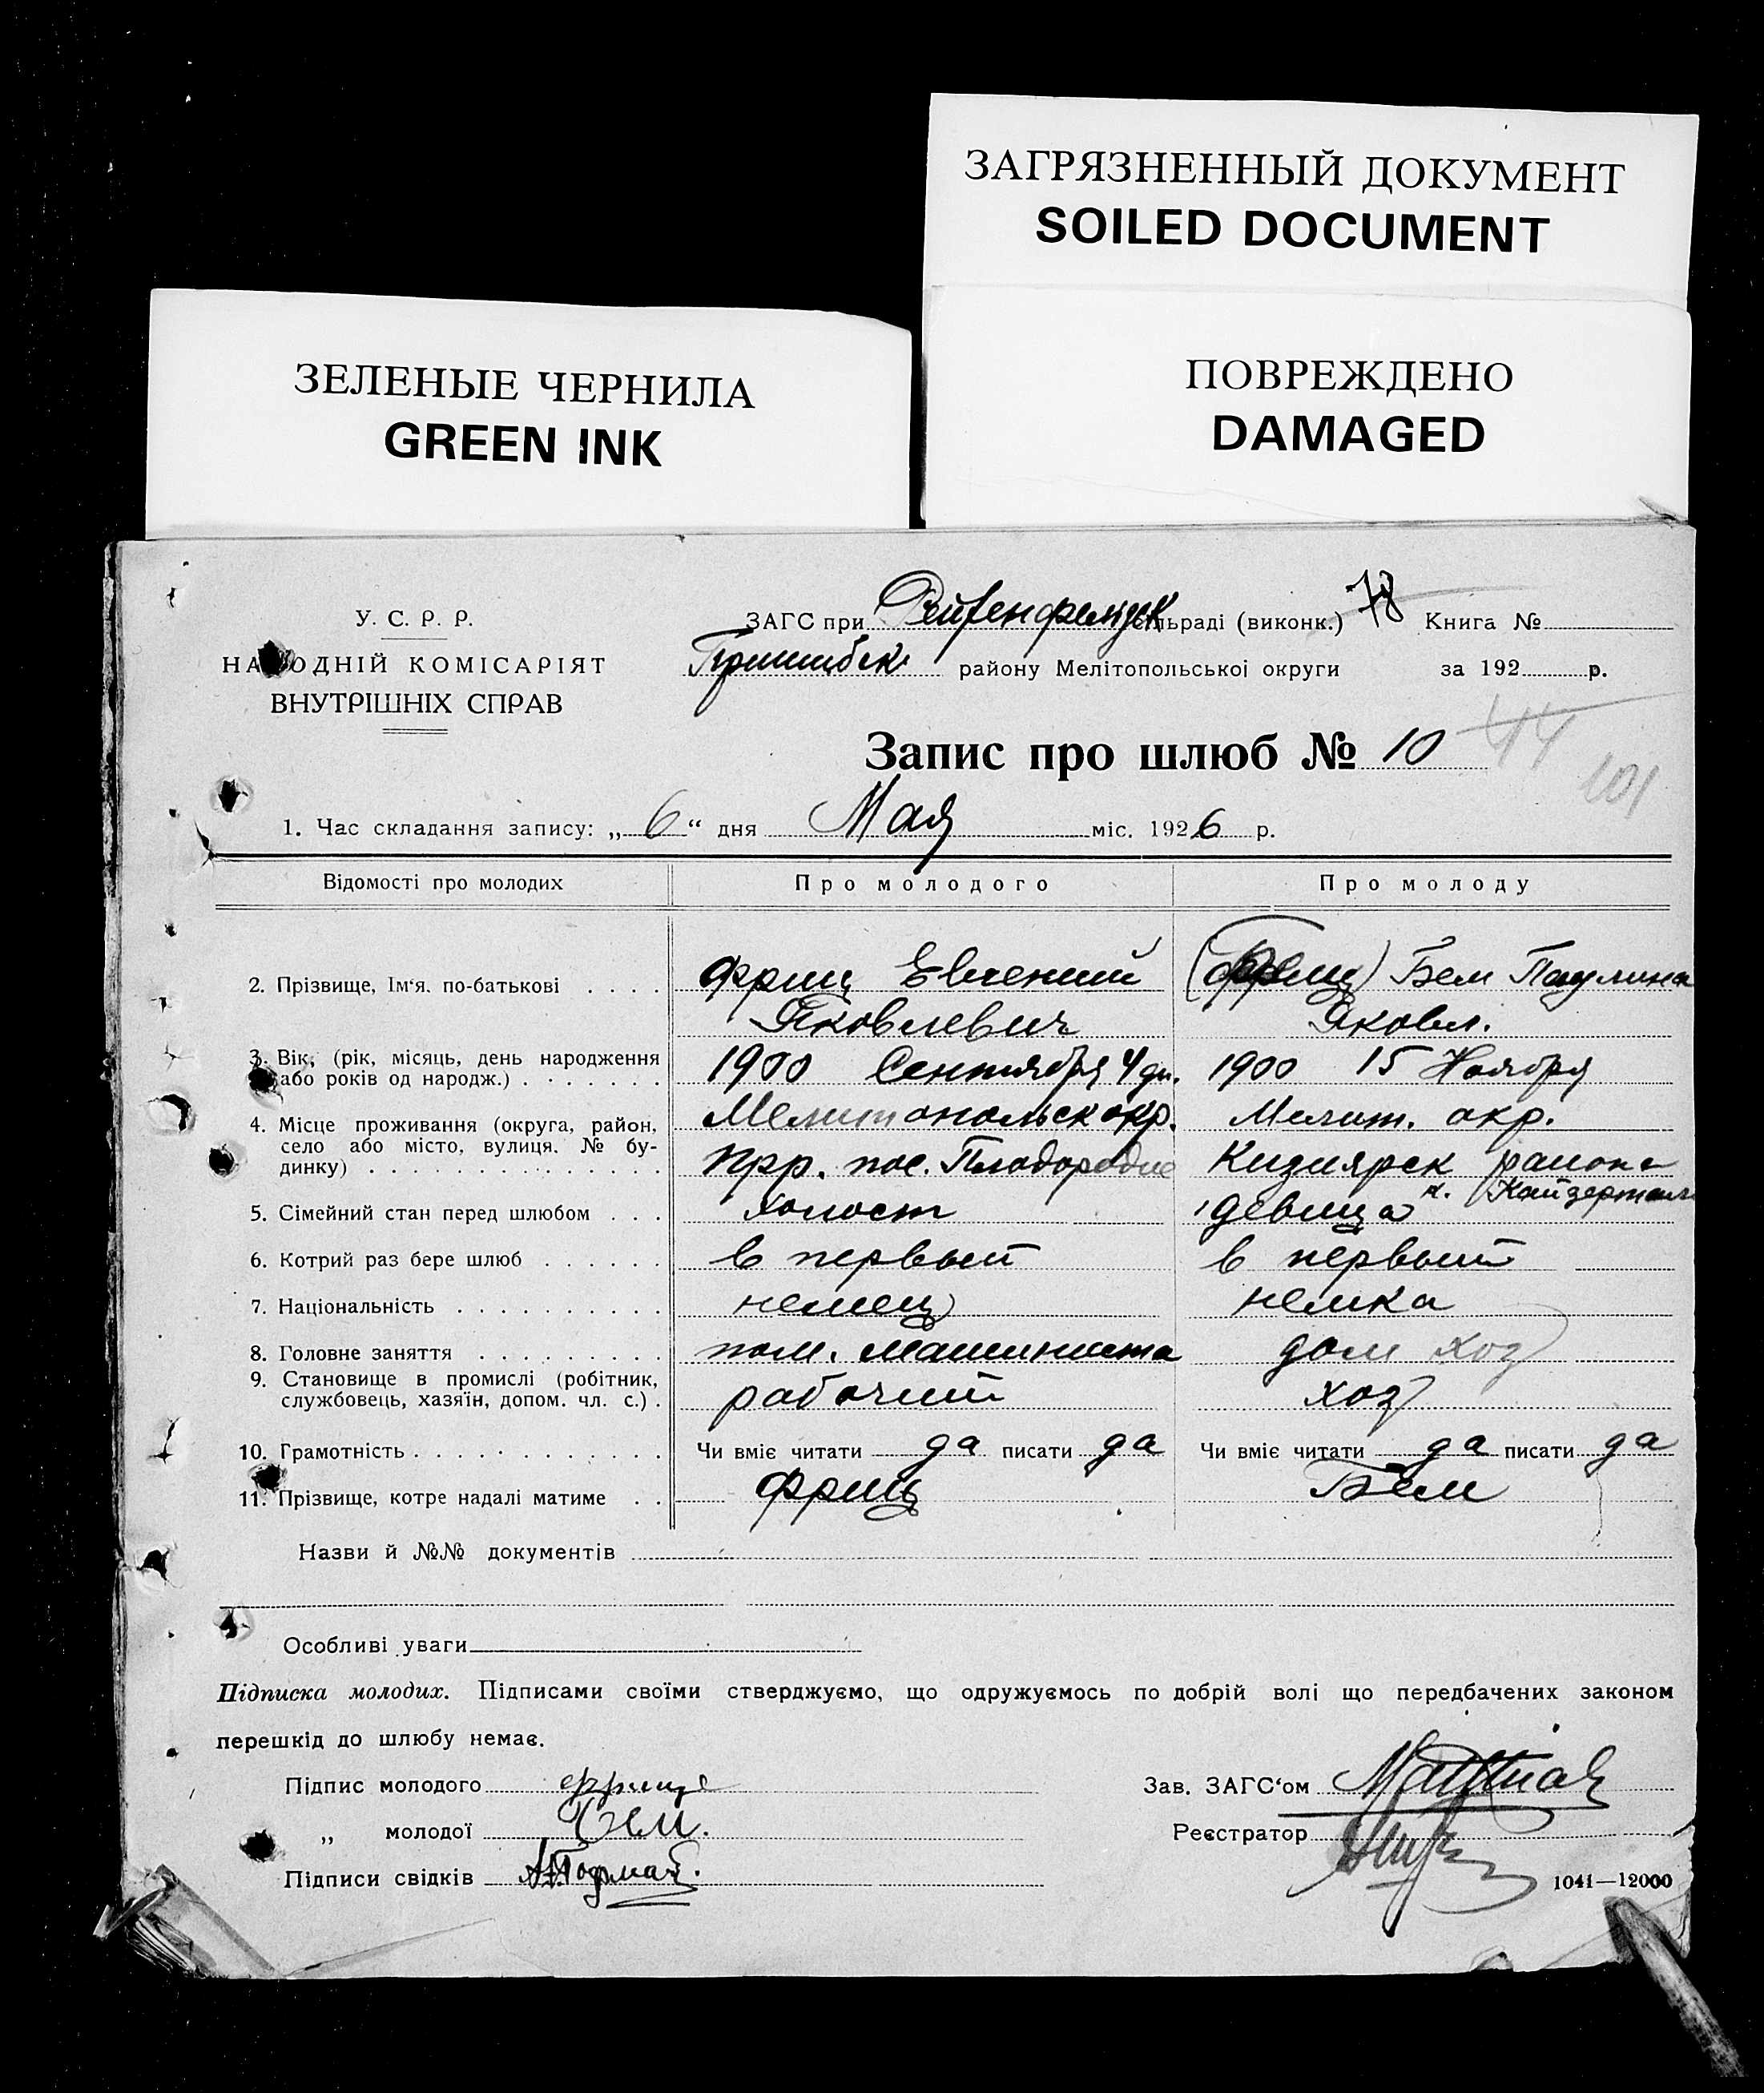 ЗАГРЯЗНЕННЫЙ ДОКУМЕНТ
SOILED DOCUMENT
ЗЕЛЕНЫЕ ЧЕРНИЛА
GREEN INK
ПОВРЕЖДЕНО
DAMAGED
У. С. Р. Р.
НАРОДНІЙ КОМІСАРІЯТ
ВНУТРІШНІХ СПРАВ
ЗАГС при Рейхенфельдск сільраді (виконк.) 78 Книга №
Пришибск району Мелітопольської округи за 192 р.
Запис про шлюб № 10 44
101
1. Час складання запису: „ 6 “ дня Мая міс. 1926 р.
Відомості про молодих Про молодого Про молоду
2. Прізвище, Ім‘я. по-батькові Фриц Евгений (Фриц) Бем Паулина
Яковлевич Яковл.
3. Вік, (рік, місяць, день народження або років од народж.) 1900 Сентября 4 дн. 1900 15 Ноября
4. Місце проживання (округа, район, Мелитопольск окр. Мелит. окр.
село або місто, вулиця. № будинку) Прр. пос. Плодородие Кизиярск района
к. Кайзерталь
5. Сімейний стан перед шлюбом холост девица
6. Котрий раз бере шлюб в первый в первый
7. Національність немец немка
8. Головне заняття пом. машиниста дом хоз
9. Становище в промислі (робітник, службовець, хазяїн, допом. чл. с.) рабочий хоз
10. Грамотність Чи вміє читати да писати да Чи вміє читати да писати да
11. Прізвище, котре надалі матиме Фриц Бем
Назви й №№ документів
Особливі уваги
Підписка молодих. Підписами своїми стверджуємо, що одружуємось по добрій волі що передбачених законом
перешкід до шлюбу немає.
Підпис молодого Фриц Зав. ЗАГС‘ом
„ молодої Бем. Реєстратор
Підписи свідків
1041—12000